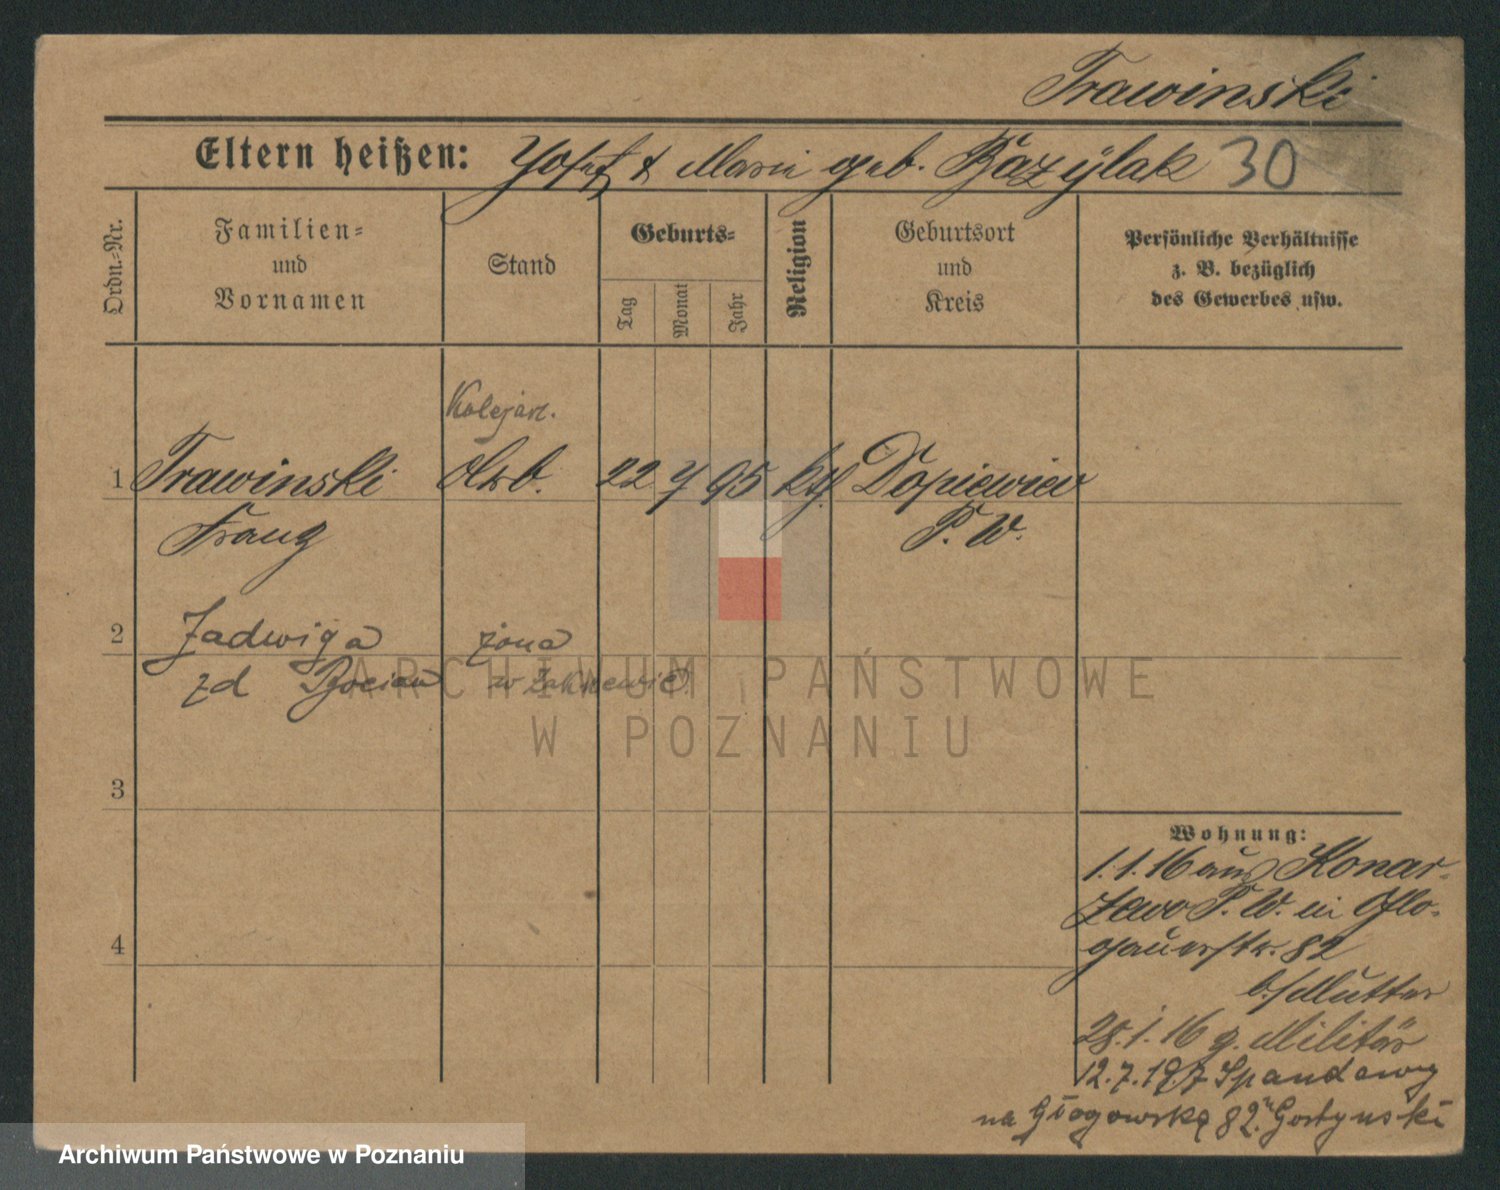 Trawinski
Eltern heißen: Josef & Marie geb. Bazÿlak 30
Ordn.-Nr.
Familien-
und
Vornamen
Stand
Geburts-
Tag
Monat
Jahr
Religion
Geburtsort
und
Kreis
Persönliche Verhältnisse
z. B. bezüglich
des Gewerbes usw.
Kolejarz.
1 Trawinski Arb. 22 7 95 kth Dopiewiec
Franz P. W.
2 Jadwiga żona
zd Bocian w
3
4
Wohnung:
1.1.16 aus Konar-
zewo P. W. in Glo-
gauerstr. 82
b./Mutter
28.1.16 z. Militär
12.7.19 z Spandawy
na Głogowską 82. Gostynski
ARCHIWUM PAŃSTWOWE
W POZNANIU
Archiwum Państwowe w Poznaniu